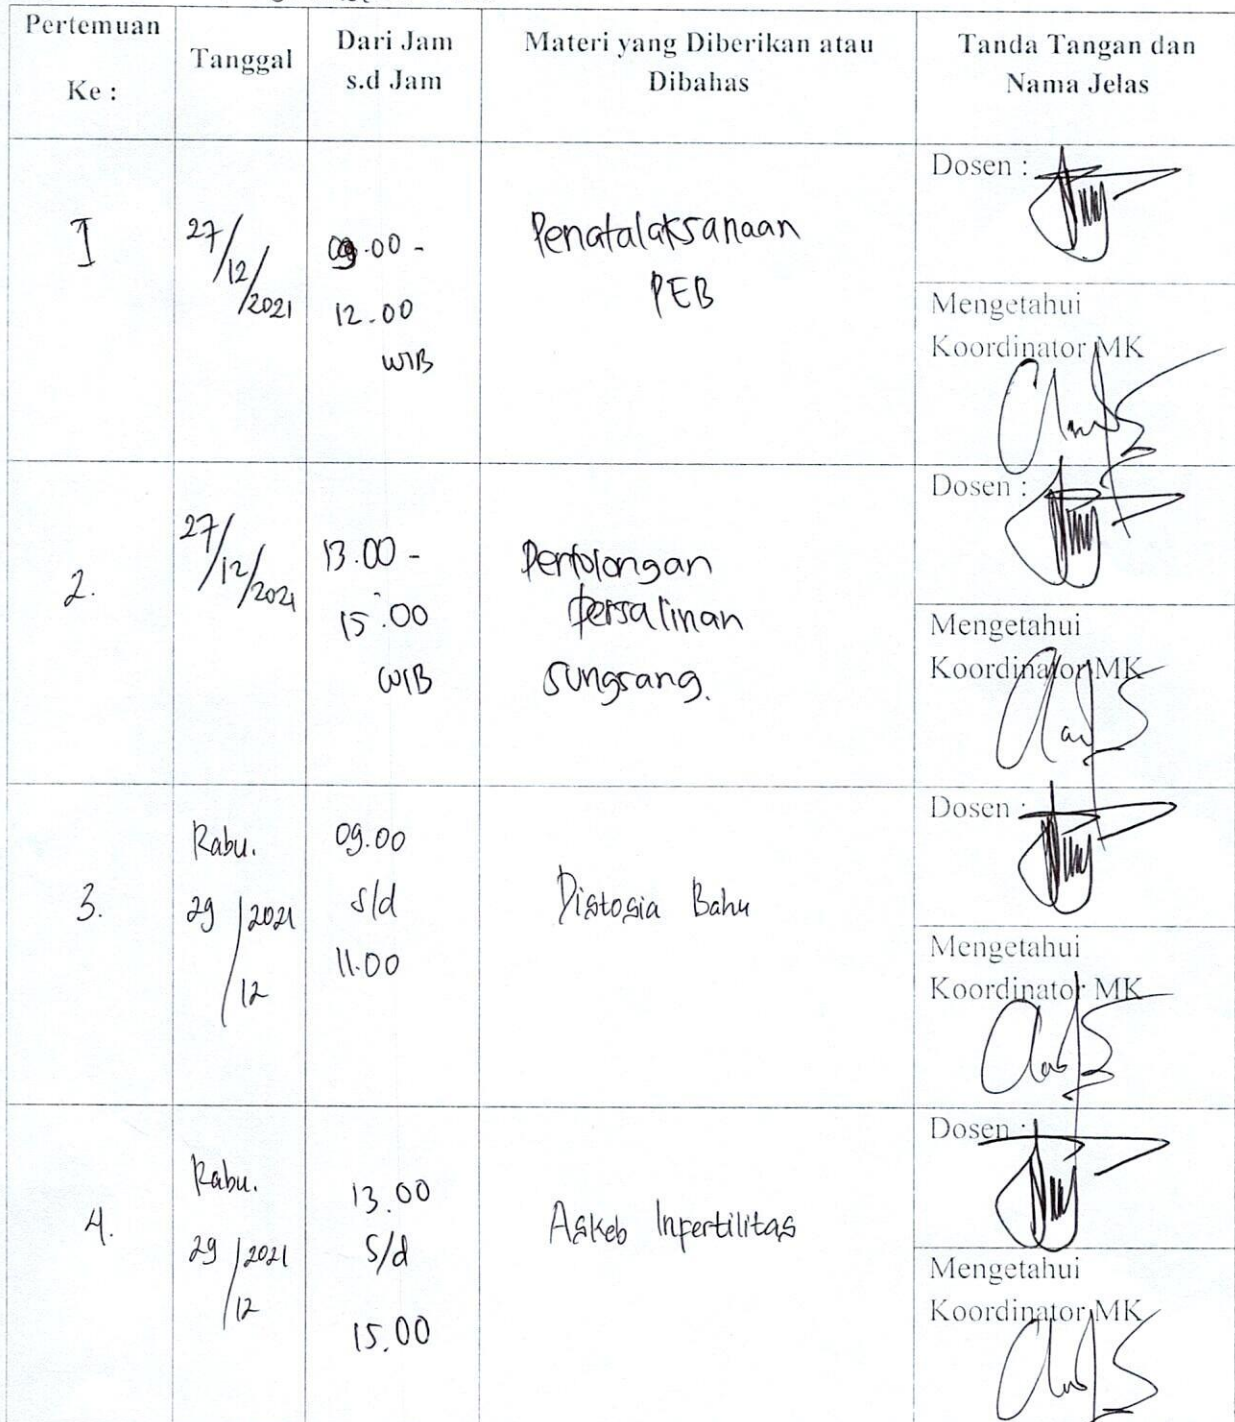 Pertemuan
Ke :
Tanggal
Dari Jam
s.d Jam
Materi yang Diberikan atau
Dibahas
Tanda Tangan dan
Nama Jelas
I
27/12/2021
09.00 -
12.00
WIB
Penatalaksanaan
PEB
Dosen :
Mengetahui
Koordinator MK
2.
27/12/2021
13.00 -
15.00
WIB
Pertolongan
persalinan
sungsang.
Dosen :
Mengetahui
Koordinator MK
3.
Rabu.
29/12/2021
09.00
s/d
11.00
Distosia Bahu
Dosen :
Mengetahui
Koordinator MK
4.
Rabu.
29/12/2021
13.00
s/d
15.00
Askeb Infertilitas
Dosen :
Mengetahui
Koordinator MK